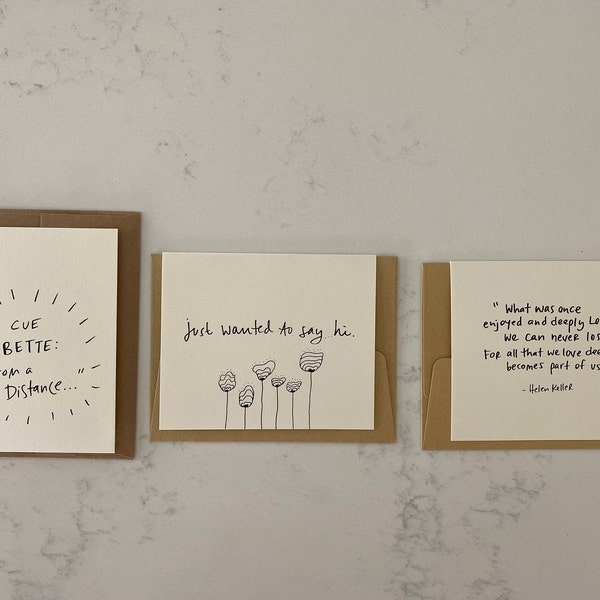 CUE
BETTE:
a
DISTANCE..."
just wanted to say...hi.
"What was once
enjoyed and deeply
we can never
For all that we love
becomes part of us
- Helen Keller